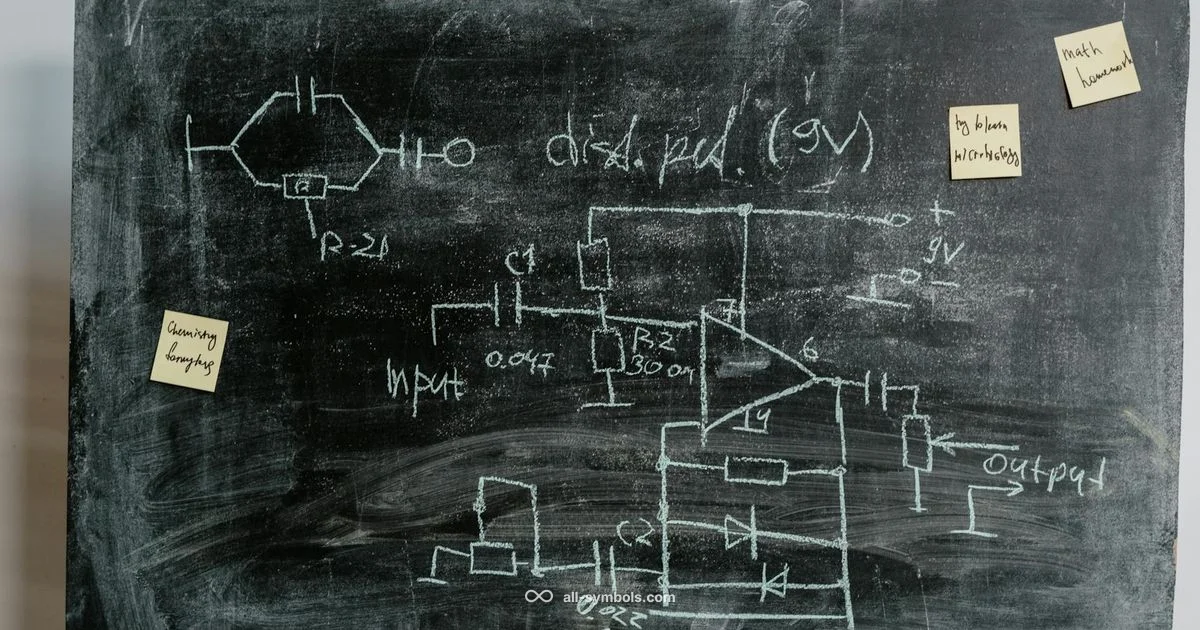 dist. ped. (9V)
R-21
C1
+
9V
-
Input
0.047
R2
7
6
4
output
C2
0.022
math
homework
try to learn
microbiology
Chemistry
∞ all-symbols.com